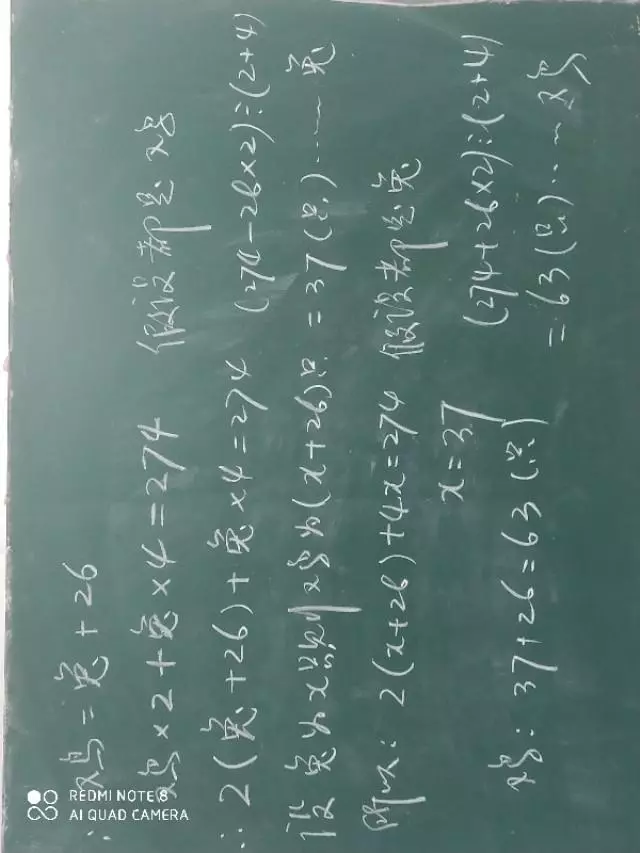 ∵ 鸡=兔+26
鸡×2+兔×4=274
∴ 2(兔+26)+兔×4=274
设兔为x只则鸡为(x+26)只
所以: 2(x+26)+4x=274
x=37
鸡: 37+26=63(只)
假设都是鸡
(274-26×2)÷(2+4)
=37(只)……兔
假设都是兔
(274+26×2)÷(2+4)
=63(只)……鸡
REDMI NOTE 8
AI QUAD CAMERA